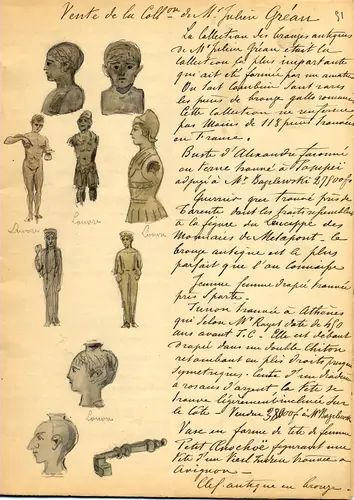 Vente de la Coll.on de Mr Julien Gréau
91
La Collection des bronzes antiques
de Mr Julien Gréau était la
Collection la plus importante
qui ait été formée par un amateur
On sait combien sont rares
les pièces de bronze gallo romaines
Cette Collection ne renferme
pas Moins de 118 pièces trouvées
en France.
Buste d'Alexandre
en terre trouvé à Pompéi
adjugé à Mr Bazelewski 27500f
Guerrier grec trouvé près de
Tarente dont les traits ressemblent
à la figure du Leucippe des
Monnaies de Métaponte. le
bronze antique est le plus
parfait que l'on connaisse
Femme drapée trouvée
près Sparte.
Junon trouvée à Athènes
qui selon Mr Rayet date de 450
ans avant J.C. Elle est debout
drapée dans un double chiton
retombant en plus droits presque
symetriques. Ceinte d'un diadème
à rosaces d'argent la tête se
trouve légèrement inclinée sur
le côté. Vendue 28000f à Mr Bazelewski
Vase en forme de tête de femme
Petit Œnochoë figurant une
tête d'un vieil trouvée à
Avignon —
Clef antique en bronze.
Louvre
Louvre
Louvre
Louvre